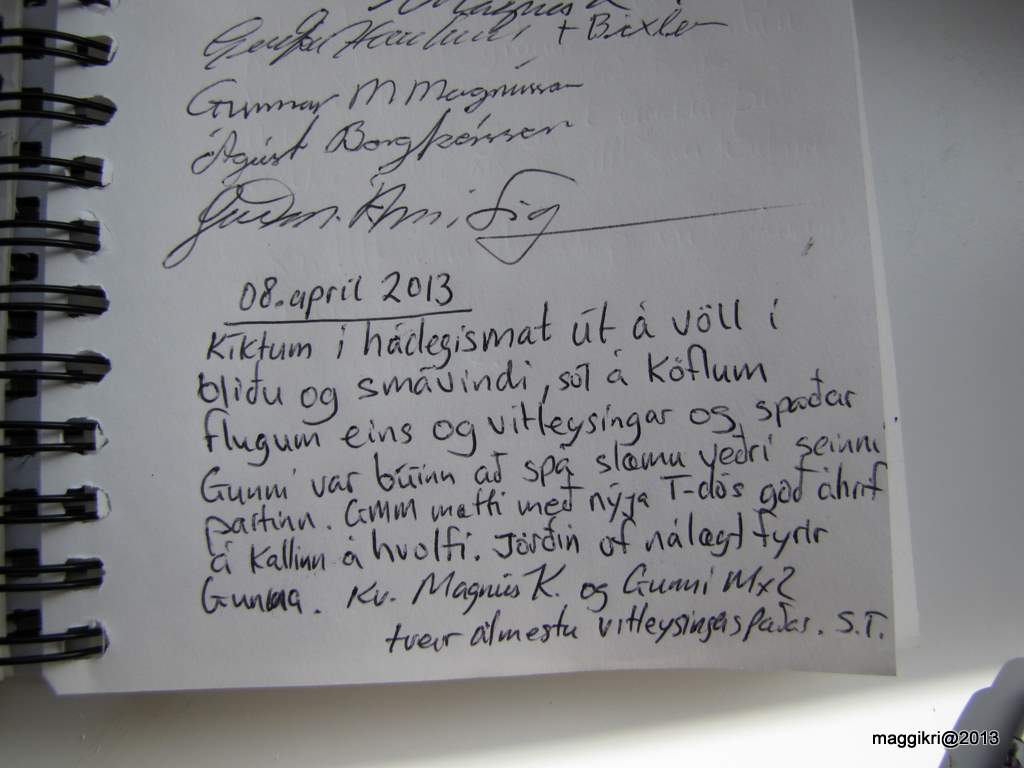 + Bixler
Gunnar M Magnússon
Ágúst Borgþórsson
08. april 2013
Kíktum í hádegismat út á völl í
blíðu og smávindi, sól á köflum
flugum eins og vitleysingar og spaðar
Gunni var búinn að spá slæmu veðri seinni
partinn. GMM mætti með nýja T-dós góð áhrif
á kallinn á hvolfi. Jörðin of nálægt fyrir
Gunna. Kv. Magnús K. og Gunni Mx2
tveir álmestu vitleysingaspaðar. S.T.
maggikri@2013